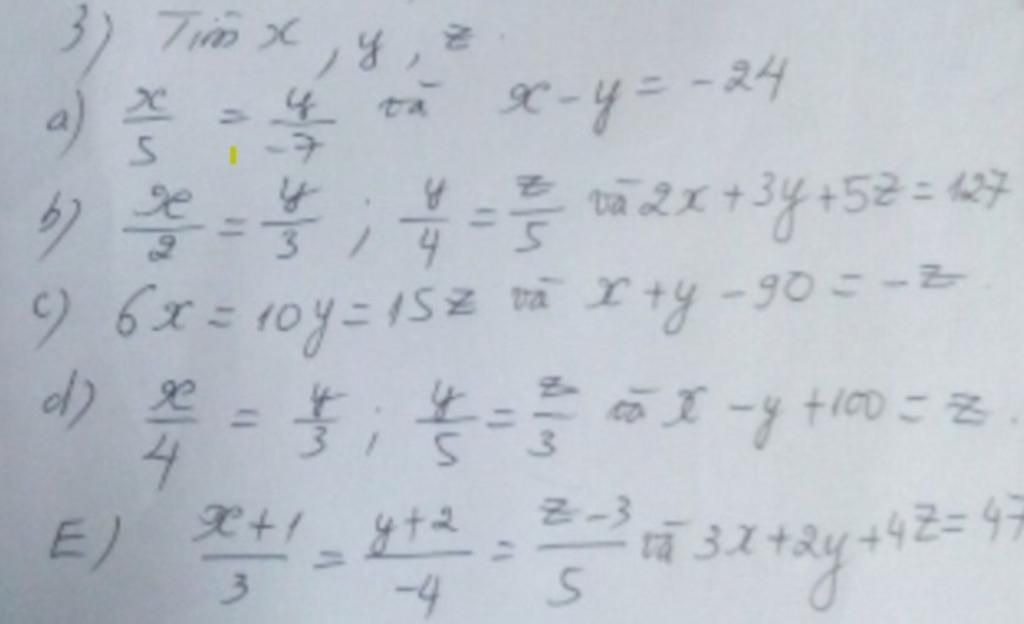 3) Tìm x, y, z.
a) x/5 = y/-7 và x - y = -24
b) x/2 = y/3 ; y/4 = z/5 và 2x + 3y + 5z = 127
c) 6x = 10y = 15z và x + y - 90 = -z.
d) x/4 = y/3 ; y/5 = z/3 và x - y + 100 = z.
E) x+1/3 = y+2/-4 = z-3/5 và 3x + 2y + 4z = 47